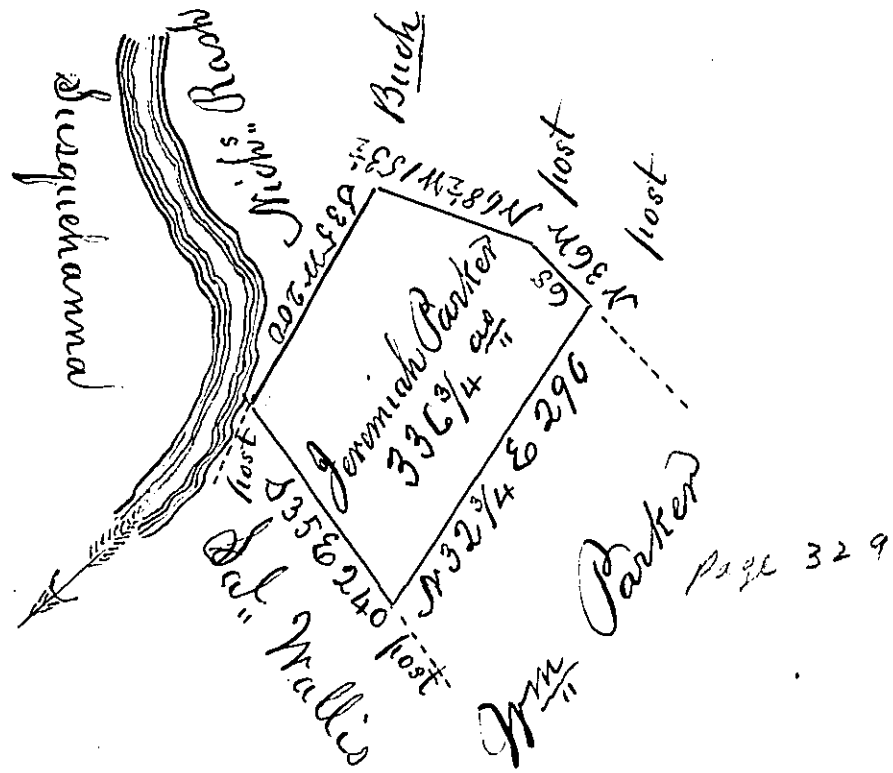 Susquehanna
Nichs Rach
Buch
S 35 W 200
N 68 ½ W 153 ½
post
N 36 W
68
post
Jeremiah Parker
336 ¾ as
N 32 ¾ E 296
post
S 35 E 240
post
Sal Wallis
Wm Parker
Page 329